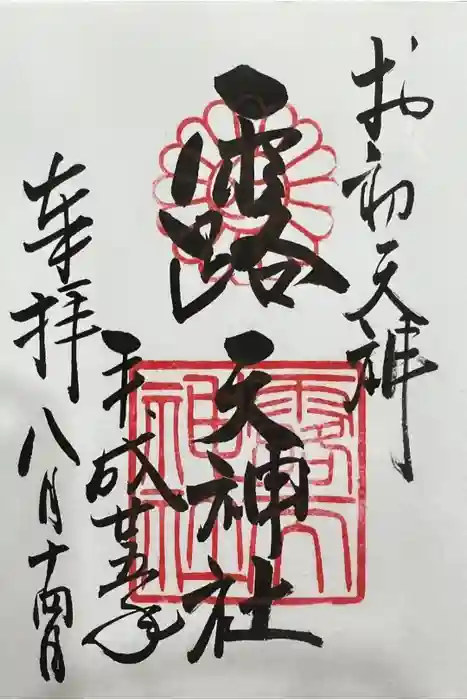 お初天神
露天神社
露天
神社
奉拝
平成廿五年
八月十四日